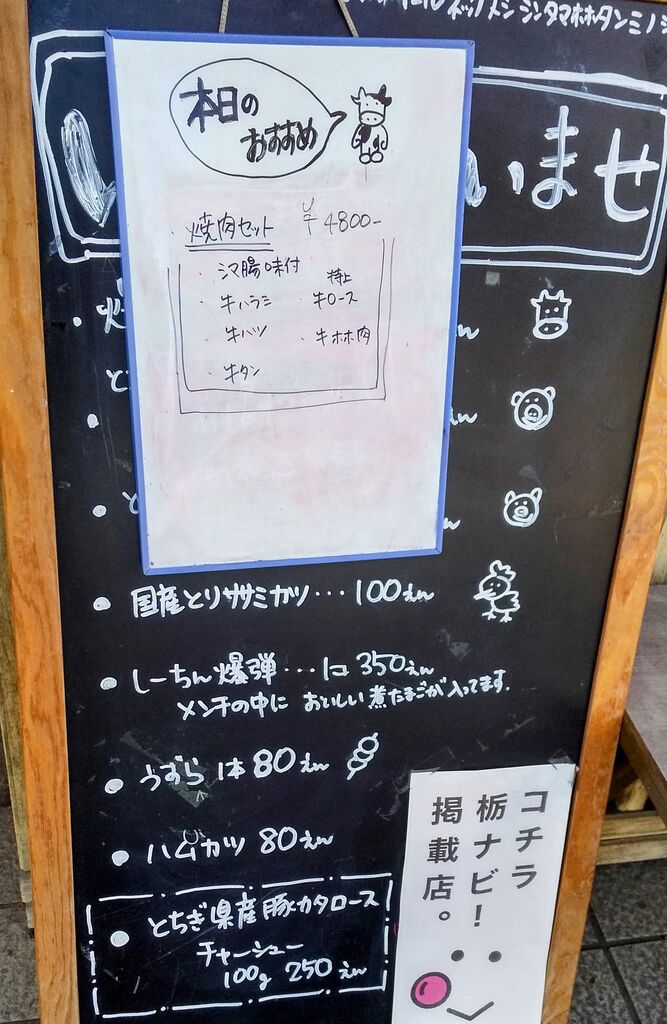 ネック メシ シンタマ ホホ タン ミノ
いませ
本日の
おすすめ
焼肉セット ¥4800-
・シマ腸味付
・牛ハラミ ・特上牛ロース
・牛ハツ ・牛ホホ肉
・牛タン
・国産とりササミカツ…100えん
・しーちゃん爆弾…1コ350えん
メンチの中に おいしい煮たまごが入ってます.
・うずら1本80えん
・ハムカツ 80えん
・とちぎ県産豚カタロース
チャーシュー
100g 250えん
コチラ
栃ナビ!
掲載店。